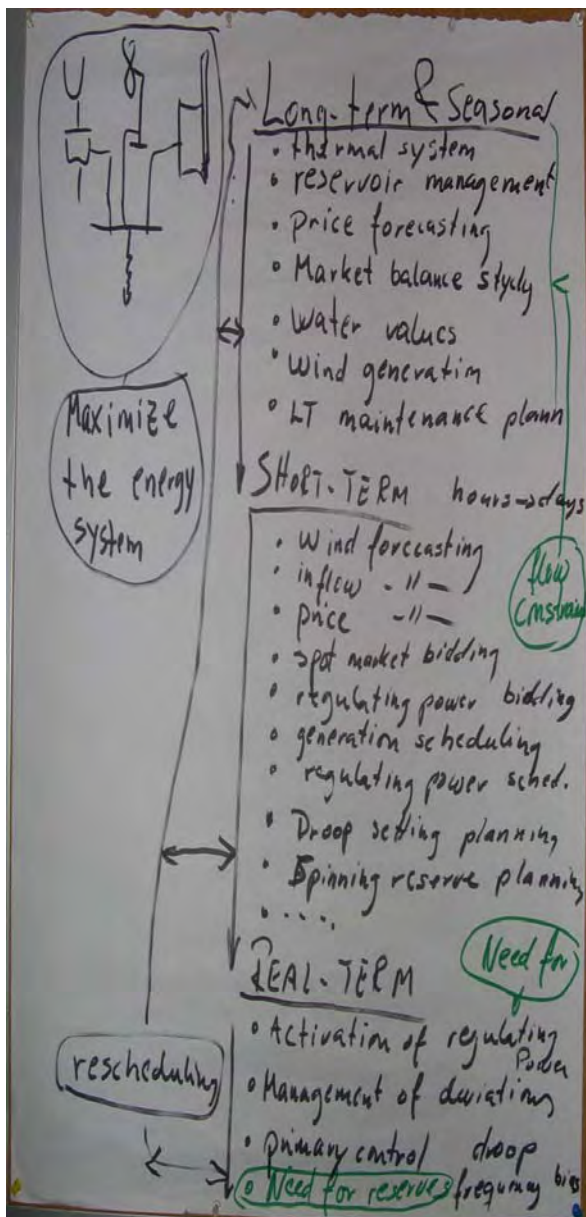 Long-term & Seasonal
• thermal system
• reservoir management
• price forecasting
• Market balance study
• Water values
• Wind generation
• LT maintenance plann
Maximize
the energy
system
SHORT-TERM hours→days
• Wind forecasting
• inflow -"-
• price -"-
• spot market bidding
• regulating power bidding
• generation scheduling
• regulating power sched.
• Droop setting planning
• Spinning reserve planning
• ....
flow
constrain
REAL-TERM
Need for
• Activation of regulating
Power
• Management of deviations
• primary control droop
• Need for reserves frequency bias
rescheduling